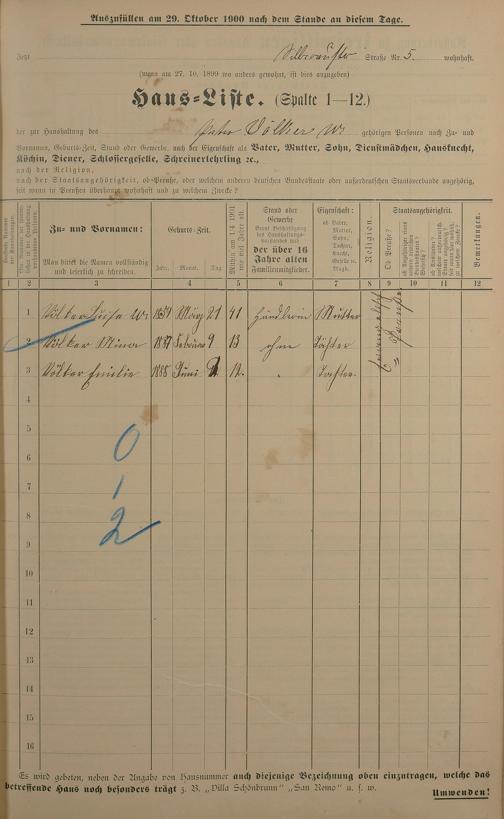 Auszufüllen am 29. Oktober 1900 nach dem Stande an diesem Tage.
Jetzt Straße Nr. 5. wohnhaft.
(wenn am 27. 10. 1899 wo anders gewohnt, ist dies anzugeben)
Haus-Liste. (Spalte 1—12.)
der zur Haushaltung des Peter Völker Wi gehörigen Personen nach Zu- und
Vornamen, Geburts-Zeit, Stand oder Gewerbe, nach der Eigenschaft als Vater, Mutter, Sohn, Dienstmädchen, Hausknecht,
Köchin, Diener, Schlossergeselle, Schreinerlehrling ec.,
nach der Religion,
nach der Staatsangehörigkeit, ob Preuße, oder welchem anderen deutschen Bundesstaate oder außerdeutschen Staatsverbande angehörig,
seit wann in Preußen überhaupt wohnhaft und zu welchem Zwecke?
Zu- und Vornamen:
Man bittet die Namen vollständig
und leserlich zu schreiben.
Geburts-Zeit.
Jahr. Monat. Tag.
Stand oder
Gewerbe
der über 16
Jahre alten
Familienmitglieder.
Eigenschaft:
ob Vater,
Mutter,
Sohn,
Tochter,
Knecht,
Geselle u.
Magd.
Religion.
Staatsangehörigkeit.
Ob Preuße?
Bemerkungen.
1 2 3 4 5 6 7 8 9 10 11 12
1 Völker Luise Wi März 21 41 Händlerin Mutter
2 Völker Mina 1887 Februar 9 13 ohne Tochter
3 Völker Emilie 1888 Juni 12 " Tochter
4
5
6
7
8
9
10
11
12
13
14
15
16
0
1
2
Es wird gebeten, neben der Angabe von Hausnummer auch diejenige Bezeichnung oben einzutragen, welche das
betreffende Haus noch besonders trägt z. B. „Villa Schönbrunn" „San Remo" u. s. w.
Umwenden!